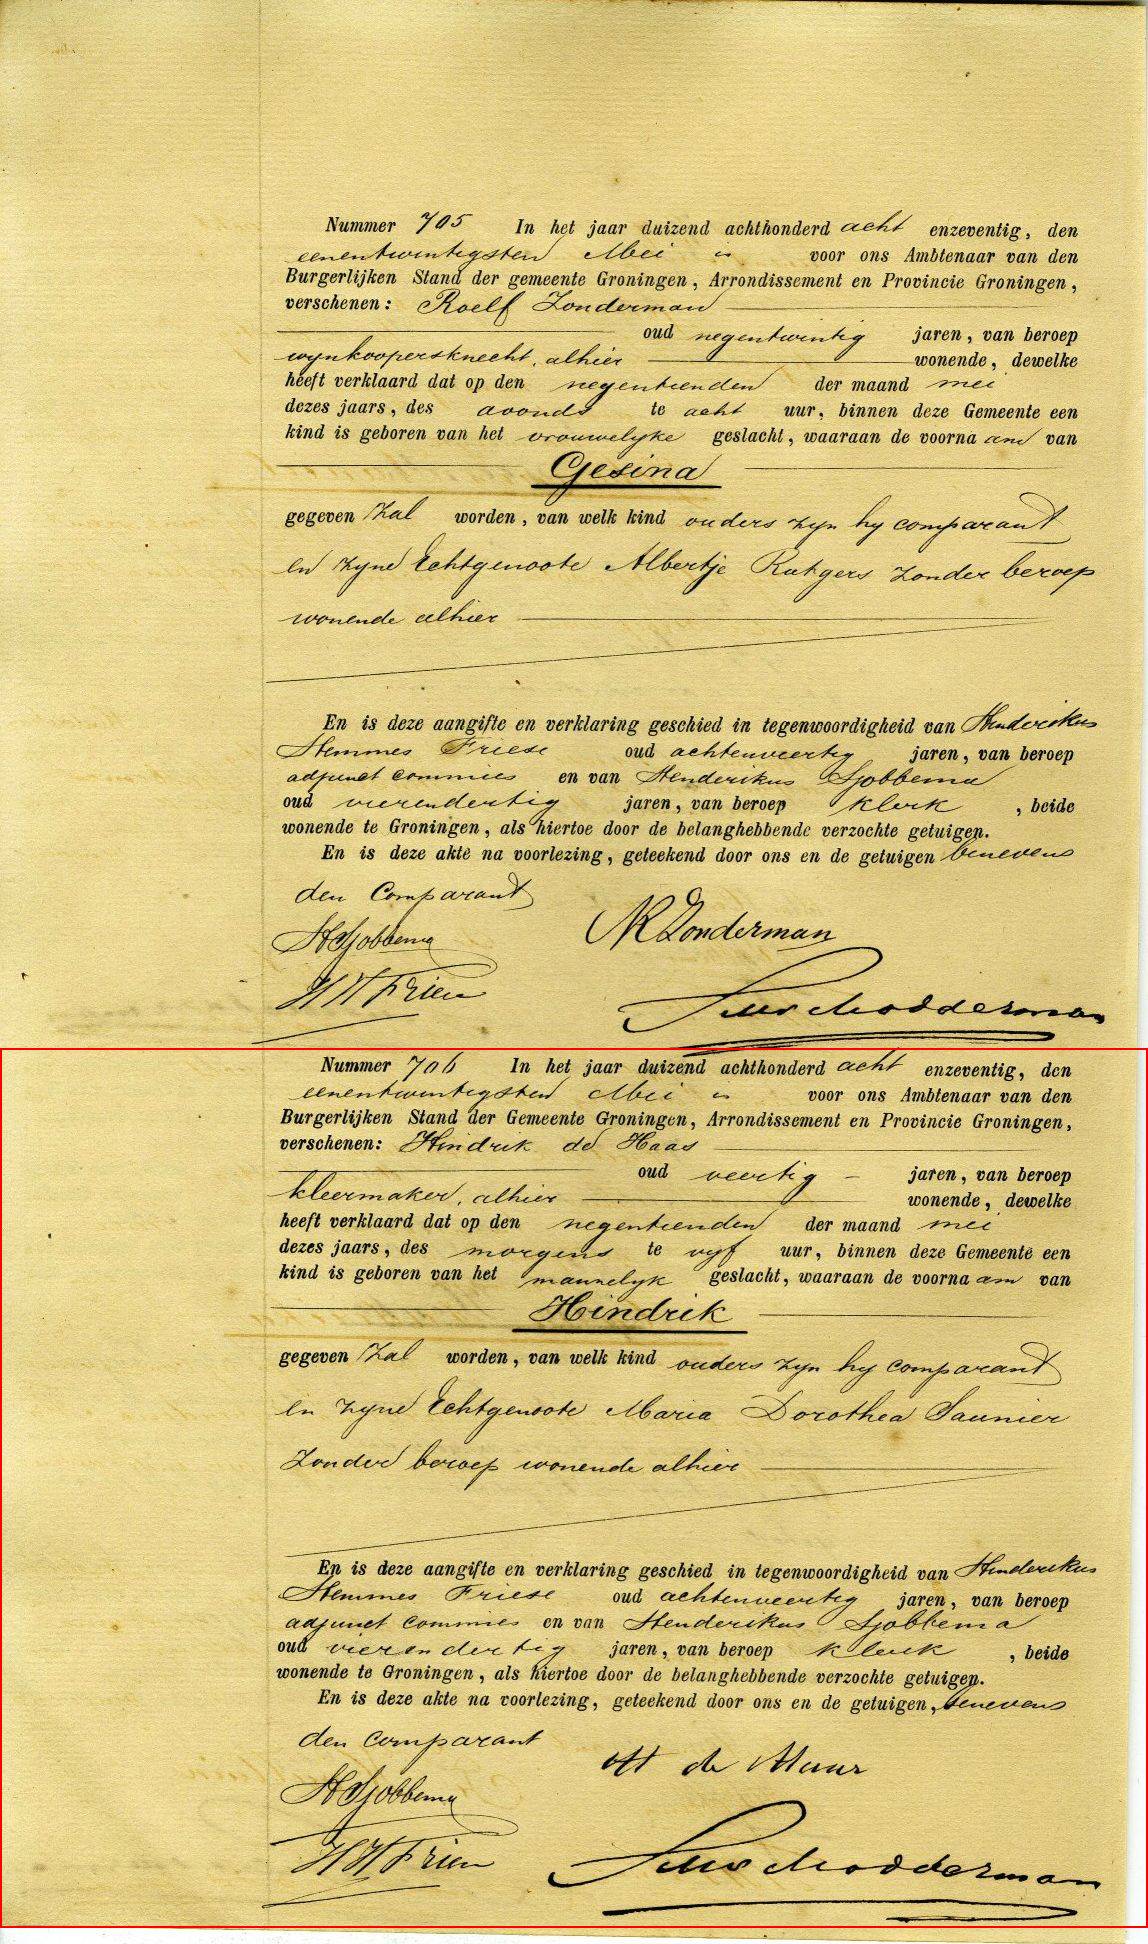 Nummer 705 In het jaar duizend achthonderd acht enzeventig, den
eenentwintigsten Mei voor ons Ambtenaar van den
Burgerlijken Stand der gemeente Groningen, Arrondissement en Provincie Groningen,
verschenen: Roelf Zonderman
oud negentwintig jaren, van beroep
wynkoopersknecht, alhier wonende, dewelke
heeft verklaard dat op den negentienden der maand mei
dezes jaars, des avonds te acht uur, binnen deze Gemeente een
kind is geboren van het vrouwelyke geslacht, waaraan de voornaam van
Gesina
gegeven zal worden, van welk kind ouders zyn hy comparant
en zyne Echtgenoote Albertje Rutgers zonder beroep
wonende alhier
En is deze aangifte en verklaring geschied in tegenwoordigheid van Henderikus
Hemmes Friese oud achtenveertig jaren, van beroep
adjunct commies en van Henderikus Sjobbema
oud vierendertig jaren, van beroep klerk , beide
wonende te Groningen, als hiertoe door de belanghebbende verzochte getuigen.
En is deze akte na voorlezing, geteekend door ons en de getuigen benevens
den Comparant
HSjobbema RZonderman
HHFriese Modderman
Nummer 706 In het jaar duizend achthonderd acht enzeventig, den
eenentwintigsten Mei voor ons Ambtenaar van den
Burgerlijken Stand der Gemeente Groningen, Arrondissement en Provincie Groningen,
verschenen: Hindrik de Haas
oud veertig jaren, van beroep
kleermaker, alhier wonende, dewelke
heeft verklaard dat op den negentienden der maand mei
dezes jaars, des morgens te vyf uur, binnen deze Gemeente een
kind is geboren van het mannelyk geslacht, waaraan de voornaam van
Hindrik
gegeven zal worden, van welk kind ouders zyn hy comparant
en zyne Echtgenoote Maria Dorothea Saunier
zonder beroep wonende alhier
En is deze aangifte en verklaring geschied in tegenwoordigheid van Henderikus
Hemmes Friese oud achtenveertig jaren, van beroep
adjunct commies en van Henderikus Sjobbema
oud vierendertig jaren, van beroep klerk , beide
wonende te Groningen, als hiertoe door de belanghebbende verzochte getuigen.
En is deze akte na voorlezing, geteekend door ons en de getuigen, benevens
den comparant
H de
HSjobbema
HHFriese Modderman